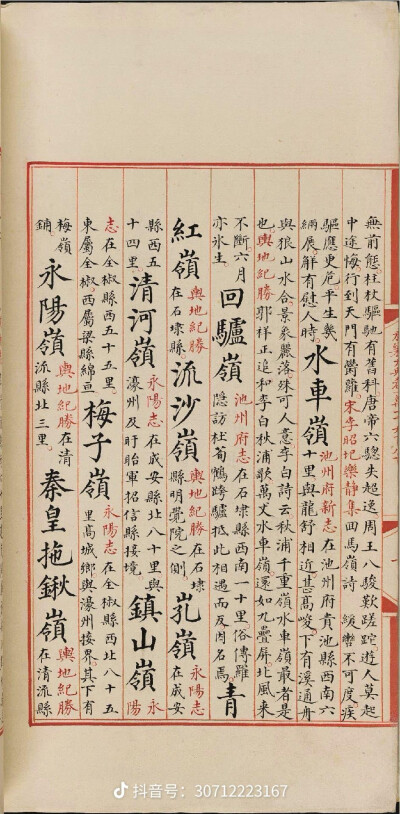 無前態。柱杖驅馳有舊科。唐帝六驄失超逸。周王八駿歎蹉跎。遊人莫起
中途悔。行到天門有薜蘿。宋李昭玘樂靜集回馬嶺詩 繞轡不可度。疾
驅應更危。平生幾
緉屐。解有慰人時。
水車嶺
池州府新志在池州府貴池縣西南六
十里。與龍舒相近。甚高峻。下有溪通舟
與狼山水合。景象麗落殊可人意。李白詩云。秋浦千重嶺。水車嶺最者是
也。輿地紀勝郭祥正追和李白秋浦歌。萬丈水車嶺。還如九疊屏。北風來
不斷。六月
亦氷生。
回驢嶺
池州府志在石埭縣西南一十里。俗傳羅
隱訪杜荀鶴。跨驢抵此相遇而反。因名焉。
青
紅嶺
輿地紀勝
在石埭縣。
流沙嶺
輿地紀勝在石埭
縣明覺院之側
孔嶺
永陽志
在成安
縣西五
十四里。
清河嶺
永陽志在成安縣北八十里。與
濠州及盱眙軍招信縣接境
鎮山嶺
永
陽
志在全椒縣西五十五里。
東屬全椒。西屬梁縣。綿亘
梅子嶺
永陽志在全椒縣西北八十五
里高城鄉。與濠州接界。其下有
梅嶺
鋪
永陽嶺
輿地紀勝在清
流縣北三里。
秦皇拖鍬嶺
輿地紀勝
在清流縣
抖音号：30712223167